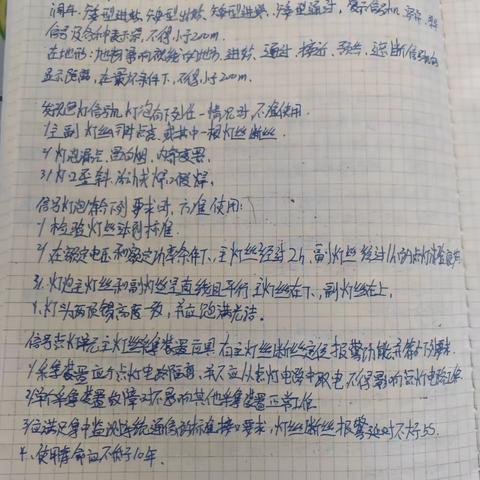 调车、矮型进站、矮型出站、矮型进路、矮型通过、
信号及各种表示器,不得小于200m.
在地形、地物影响视线的地方,进站、通过、接近、预告、遮断信号的
显示距离,在最坏条件下,不得小于200m.
发现色灯信号机灯泡有下列任一情况时,不准使用.
1/主副灯丝同时点亮,或其中一根灯丝断丝.
2/灯泡漏气,冒白烟,内部变黑.
3/灯口歪斜、活动或焊口假焊.
信号灯泡符合下列要求时,方准使用:
1/检验灯丝达到标准.
2/在额定电压和额定功率条件下,主灯丝经过2h,副灯丝经过1h的点灯试验良好
3/灯泡主灯丝和副灯丝呈直线且平行,主灯丝在下,副灯丝在上.
4、灯头两顶锡高度一致,并应饱满光洁.
信号点灯单元主灯丝采集装置应具有主灯丝断丝定位报警功能并符合下列要求.
1/采集装置应与点灯电路隔离,并不应从点灯电路中取电,不得影响点灯电路工作
2/单个采集装置故障时不影响其他采集装置正常工作.
3/应满足集中监测系统通信的标准接口要求,灯丝断丝报警延时不大于5S.
4、使用寿命应不低于10年.